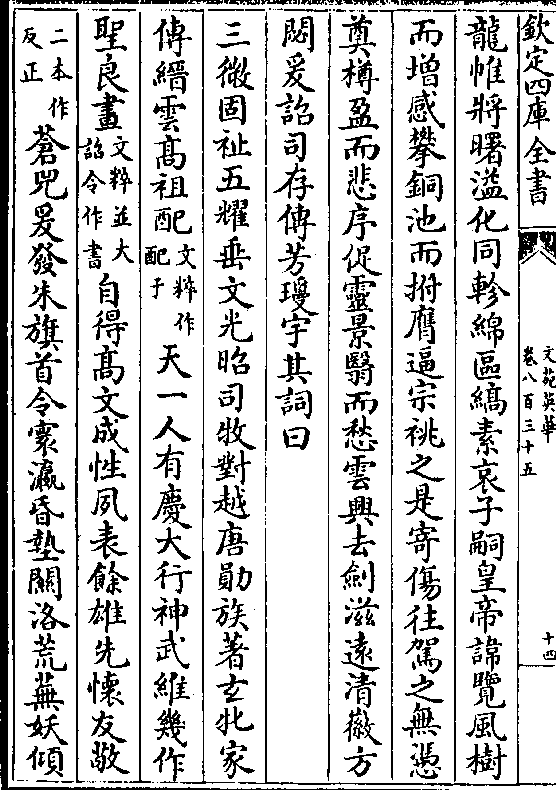 欽定四庫全書
文苑英華
卷八百三十五
十四
龍帷將曙溘化同軫綿區縞素哀子嗣皇帝諱覽風樹
而增感攀銅池而拊膺逼宗祧之是寄傷往駕之無憑
奠樽盈而悲序促靈景翳而愁雲興去劍滋遠清徽方
悶爰詔司存傳芳瓊宇其詞曰
三微固祉五耀垂文光昭司牧對越唐勛族著玄牝家
傳縉雲髙祖配文粹作配于天一人有慶大行神武維幾作
聖良畫文粹並大詔令作書自得髙文成性夙表餘雄先懷友敬
二本作反正蒼兕爰發朱旗首令寰瀛昏墊關洛荒蕪妖傾